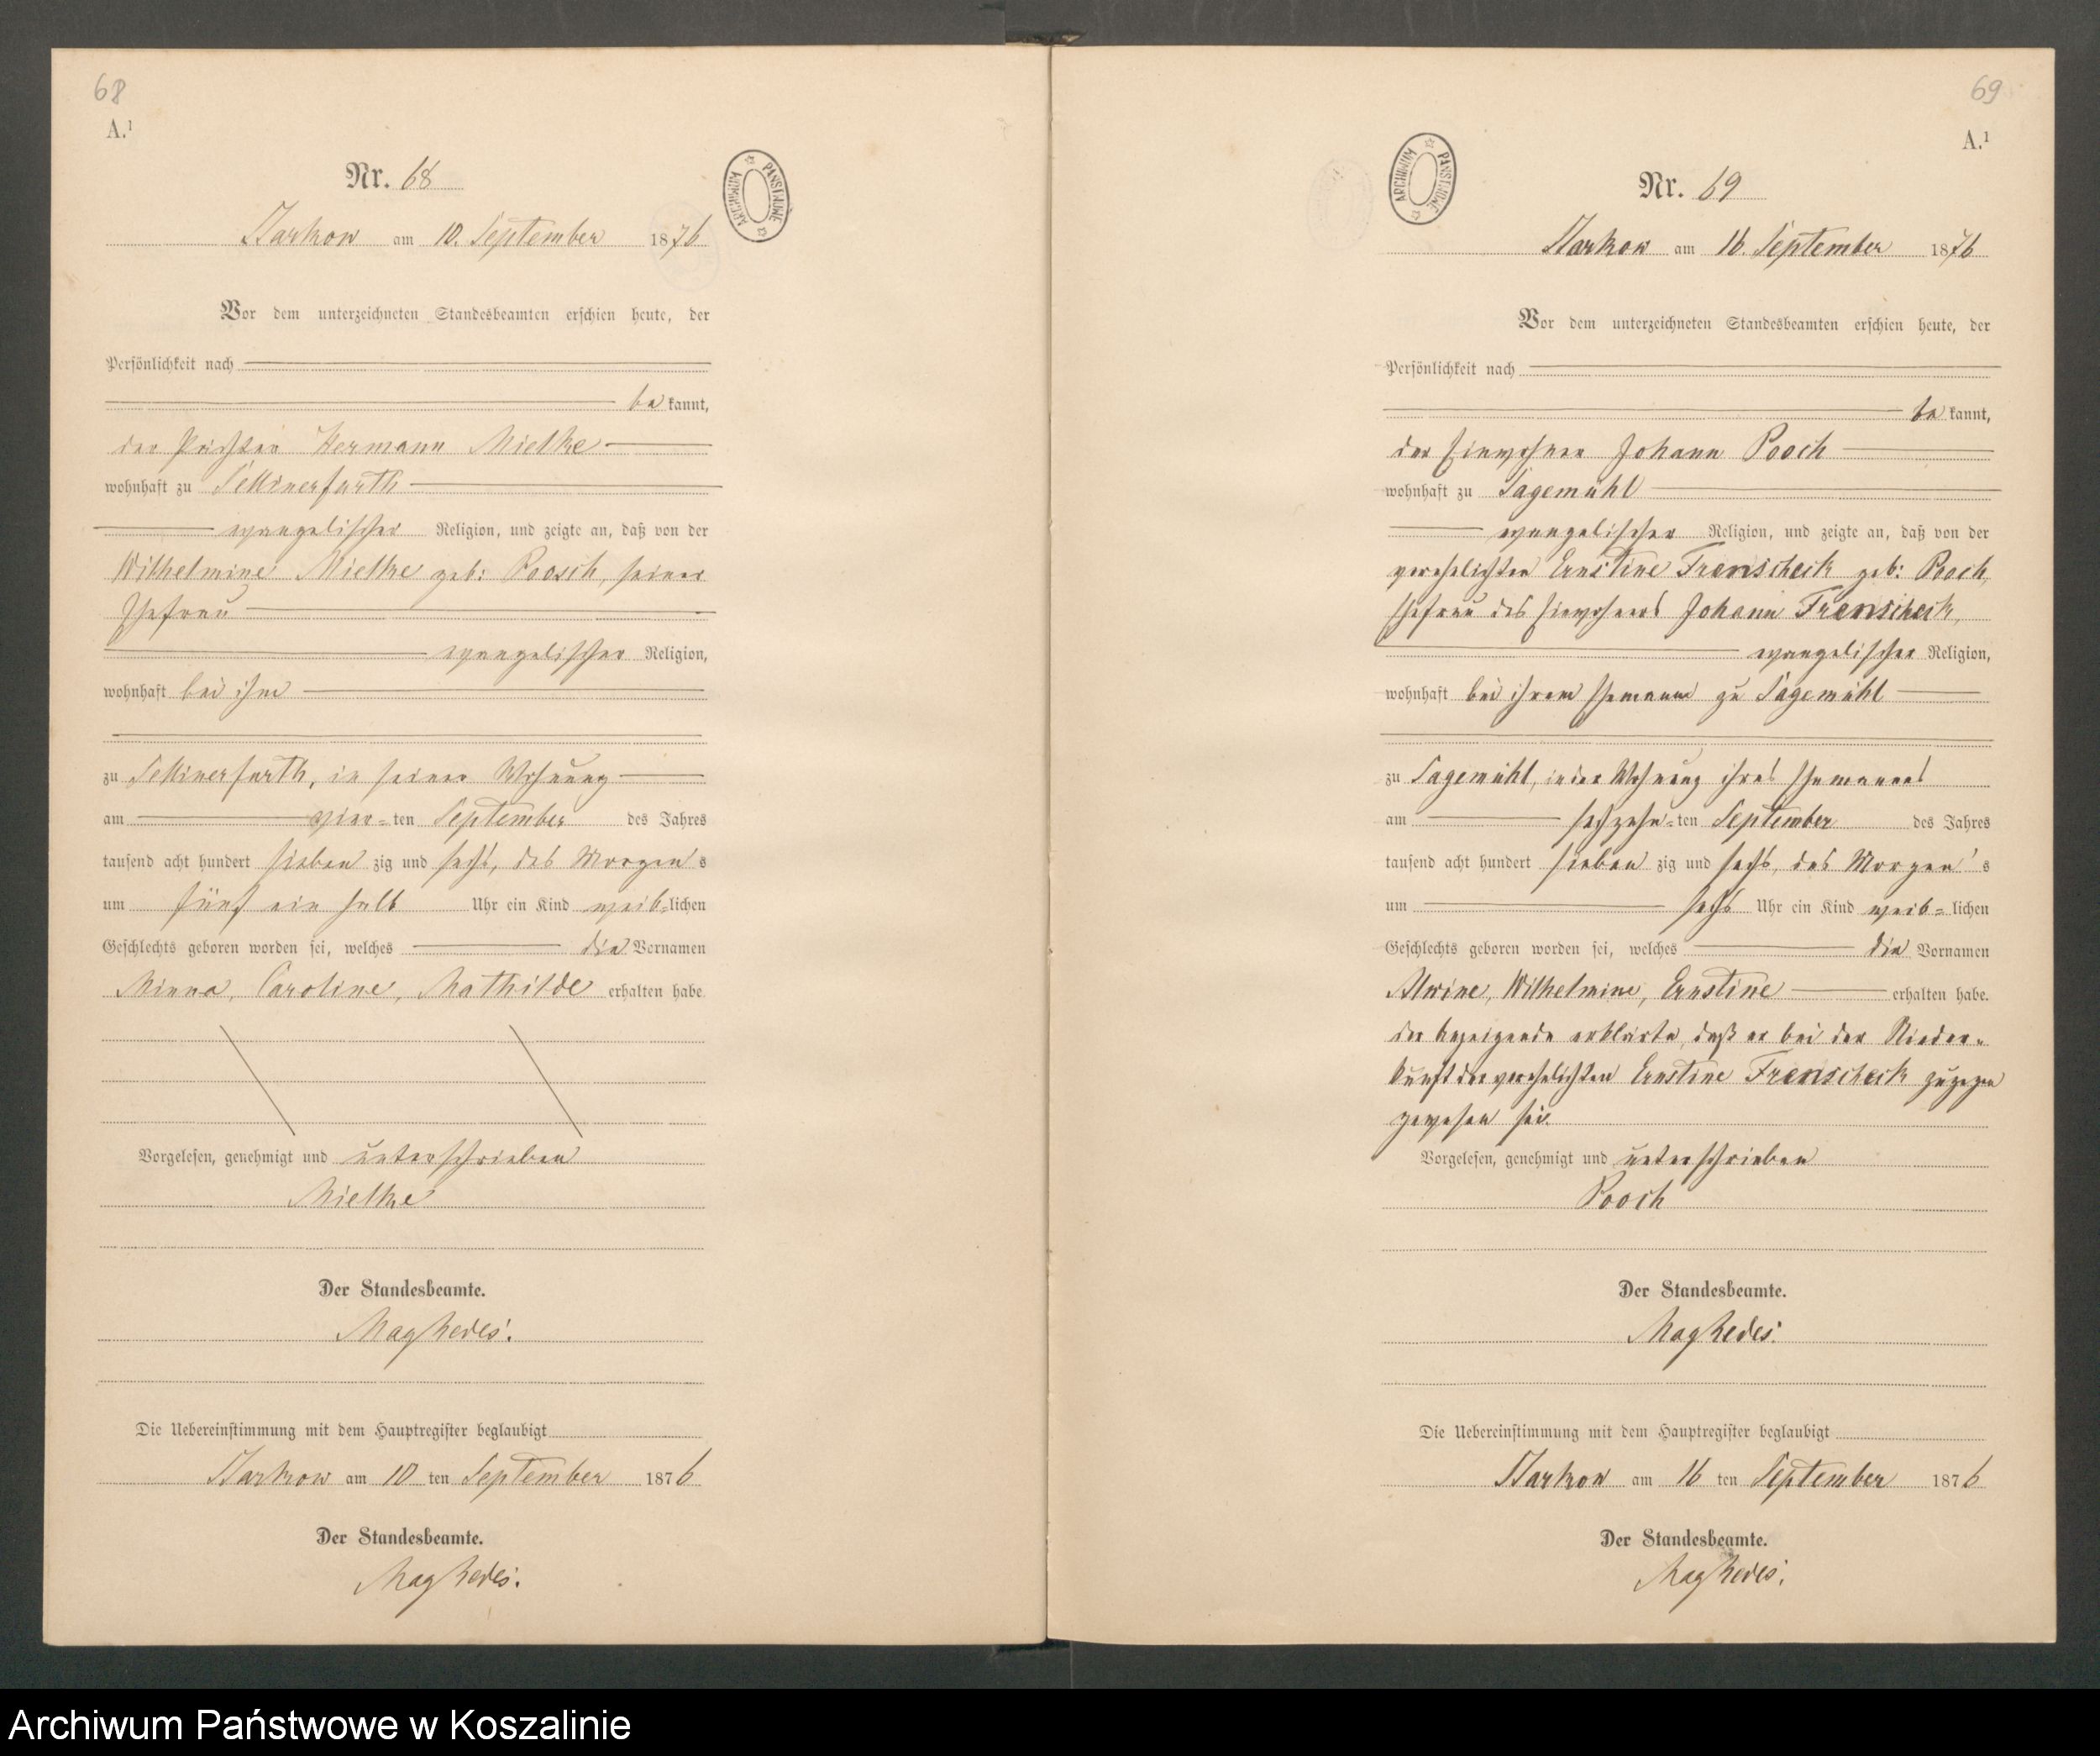 68
A.¹
Nr. 68
ARCHIWUM PAŃSTWOWE
Starkow am 10. September 1876
Vor dem unterzeichneten Standesbeamten erschien heute, der
Persönlichkeit nach
be kannt,
der Pächter Hermann Mielke
wohnhaft zu Sellinerfurth
evangelischer Religion, und zeigte an, daß von der
Wilhelmine Mielke geb: Poosch, seiner
Ehefrau
evangelischer Religion,
wohnhaft bei ihm
zu Sellinerfurth, in seiner Wohnung
am vier-ten September des Jahres
tausend acht hundert sieben zig und sechs, des Morgen s
um fünf ein halb Uhr ein Kind weib-lichen
Geschlechts geboren worden sei, welches die Vornamen
Minna, Caroline, Mathilde erhalten habe.
Vorgelesen, genehmigt und unterschrieben
Mielke
Der Standesbeamte.
Die Uebereinstimmung mit dem Hauptregister beglaubigt
Starkow am 10 ten September 1876
Der Standesbeamte.
69
A.¹
ARCHIWUM PAŃSTWOWE
Nr. 69
Starkow am 16. September 1876
Vor dem unterzeichneten Standesbeamten erschien heute, der
Persönlichkeit nach
be kannt,
der Einwohner Johann Pooch
wohnhaft zu Sagemühl
evangelischer Religion, und zeigte an, daß von der
verehelichten Ernstine Frenscheck geb: Pooch,
Ehefrau des Einwohners Johann Frenscheck,
evangelischer Religion,
wohnhaft bei ihrem Ehemann zu Sagemühl
zu Sagemühl, in der Wohnung ihres Ehemannes
am sechzehn-ten September des Jahres
tausend acht hundert sieben zig und sechs, des Morgen's
um sechs Uhr ein Kind weib-lichen
Geschlechts geboren worden sei, welches die Vornamen
Alwine, Wilhelmine, Ernstine erhalten habe.
der Anzeigende erklärte, daß er bei der Nieder-
kunft der verehelichten Ernstine Frenscheck zugegen
gewesen sei.
Vorgelesen, genehmigt und unterschrieben
Pooch
Der Standesbeamte.
Die Uebereinstimmung mit dem Hauptregister beglaubigt
Starkow am 16 ten September 1876
Der Standesbeamte.
Archiwum Państwowe w Koszalinie